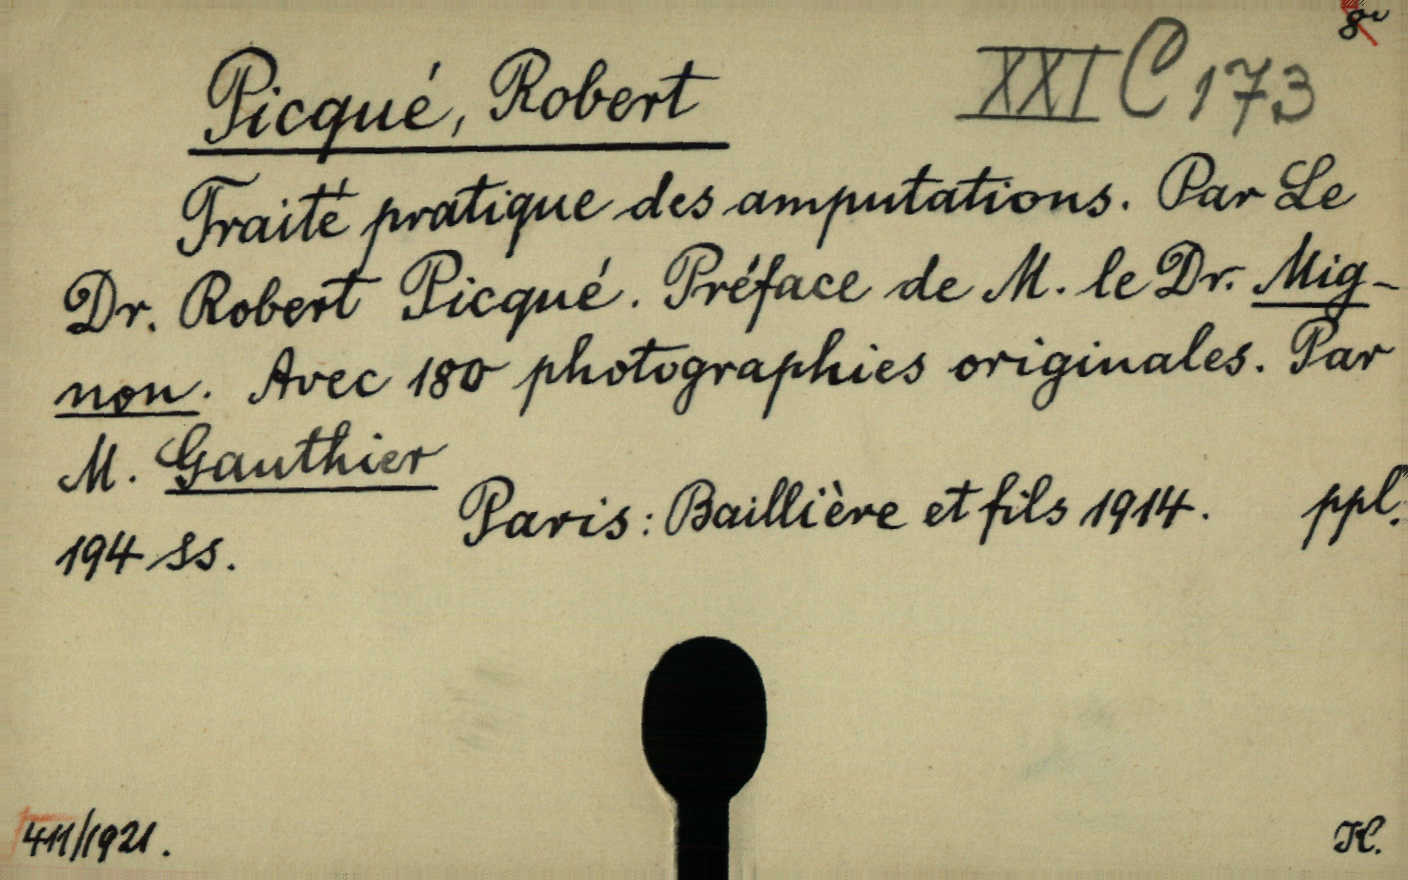 8°
XXI C 173
Picqué, Robert
Traité pratique des amputations. Par Le
Dr. Robert Picqué. Préface de M. le Dr. Mig-
non. Avec 180 photographies originales. Par
M. Gauthier
Paris: Baillière et fils 1914. ppl.
194 ss.
411/1921.
K.